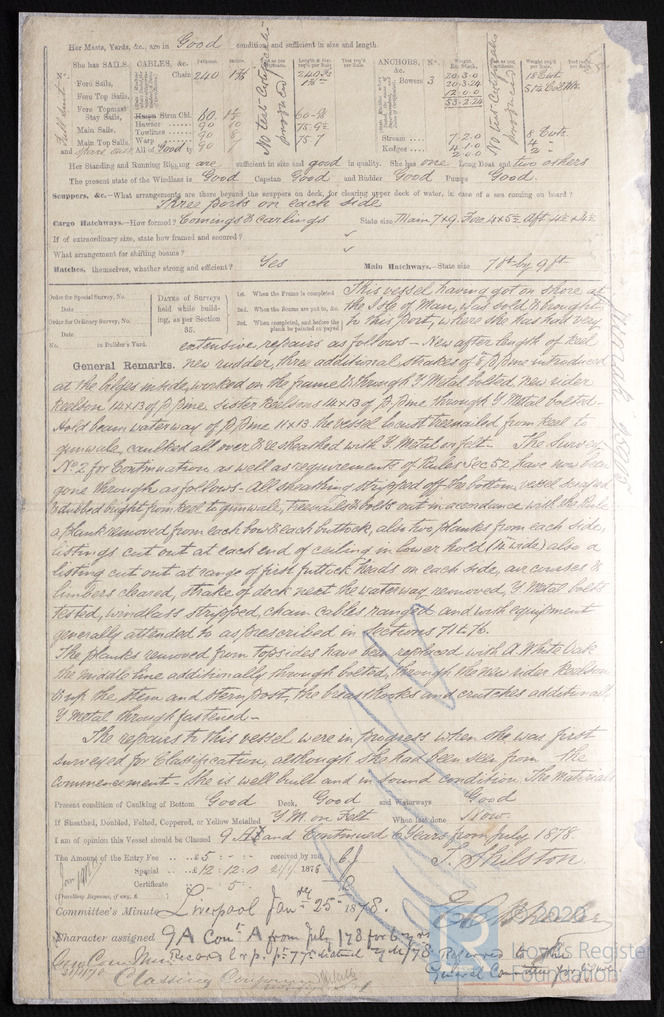 Her Masts, Yards, &c., are in Good condition and sufficient in size and length.
She has SAILS. CABLES, &c. Fathoms. ANCHORS, &c. No.
No. Chain 240 Bowers 3 20.3.0 18 Cwts
Fore Sails, 20.3.24
Fore Top Sails, 12.0.0
Fore Topmast Stay Sails, Hemp Strm Cbl. 60 53.2.24
Main Sails, Hawser 90 10
Towlines 90 Stream 7.2.0 8 Cwts
Main Top Sails, Warp 90 Kedges 4.1.0 4
and All of Good 2.0.0 2
No test Certificate produced
No test Certificates produced
Her Standing and Running Rigging are sufficient in size and good in quality. She has one Long Boat and two others
The present state of the Windlass is Good Capstan Good and Rudder Good Pumps Good.
Scuppers, &c.—What arrangements are there beyond the scuppers on deck, for clearing upper deck of water, in case of a sea coming on board?
Three ports on each side
Cargo Hatchways.—How formed? Comings & Carlings State size Main 7 x 9. Fore 4 x 5½ Aft 4½ x 4½
If of extraordinary size, state how framed and secured?
What arrangement for shifting beams?
Hatches, themselves, whether strong and efficient? Yes Main Hatchways.—State size 7 ft by 9 ft
Order for Special Survey, No.
Date
Order for Ordinary Survey, No.
Date
No. in Builder's Yard.
DATES of Surveys held while building, as per Section 35.
1st. When the Frame is completed
2nd. When the Beams are put in, &c.
3rd. When completed, and before the plank be painted or payed
This vessel having got on shore at
the I. of Man, was sold & brought
to this port, where she has had very
extensive repairs as follows – New after length of keel
General Remarks. new rudder, three additional strakes of P. pine introduced
at the bilges inside, worked on the frame & through Y. Metal bolted, new rider
Keelson 14x13 of P. pine, sister Keelsons 14x13 of P. pine through Y. Metal bolted –
Hold beam waterway of P. pine 11x13 the vessel locust treenailed from keel to
gunwale, caulked all over & resheathed with Y. Metal on felt – The Survey
No. 2 for Continuation as well as requirements of Rules Sec 52 have now been
gone through as follows – All sheathing stripped off the bottom vessel scraped
& dubbed bright from keel to gunwale, treenails & bolts out in accordance with the Rule
a plank removed from each bow & each buttock, also two planks from each side,
listings cut out at each end of ceiling in lower hold (4 in wide) also a
listing cut out at range of first futtock heads on each side, air courses &
limbers cleared, strake of deck next the waterway removed, Y Metal bolts
tested, windlass stripped, chain cables ranged and with equipment
generally attended to as prescribed in Sections 71 to 76.
The planks removed from Topsides have been replaced with A. White Oak
the middle line additionally through bolted, through the new rider Keelson
& up the stem and stern post, the breasthooks and crutches additionally
Y Metal through fastened –
The repairs to this vessel were in progress when she was first
surveyed for Classification, although she had been seen from the
commencement – She is well built and in sound condition. The Materials
Present condition of Caulking of Bottom Good Deck, Good and Waterways Good
If Sheathed, Doubled, Felted, Coppered, or Yellow Metalled Y.M. on Felt When last done Now.
I am of opinion this Vessel should be Classed 9 A1 and Continued 6 Years from July 1878
The Amount of the Entry Fee £5 : - : - received by me, T. Shilston.
Special £12 : 12 : 0 1878
Certificate - 5 : -
(Travelling Expenses, if any, £
Committee's Minute Liverpool Jany 25 1878.
Character assigned 9A Cont. A from July /78 for 6 yrs
Referred to the
General Committee for
Classing Committee
© 2020
Lloyd's Register
Foundation